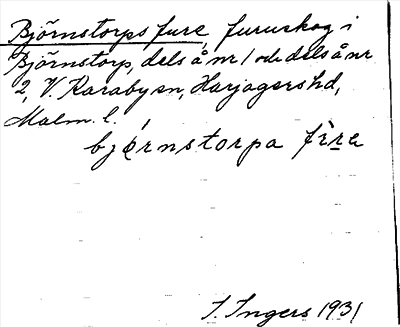 Björnstorps fure, furuskog i
Björnstorp, dels å nr 1 och dels å nr
2, V. Karaby sn, Harjagers hd,
Malm. l.
bjørnstorpa fìrɐ
I. Ingers 1931